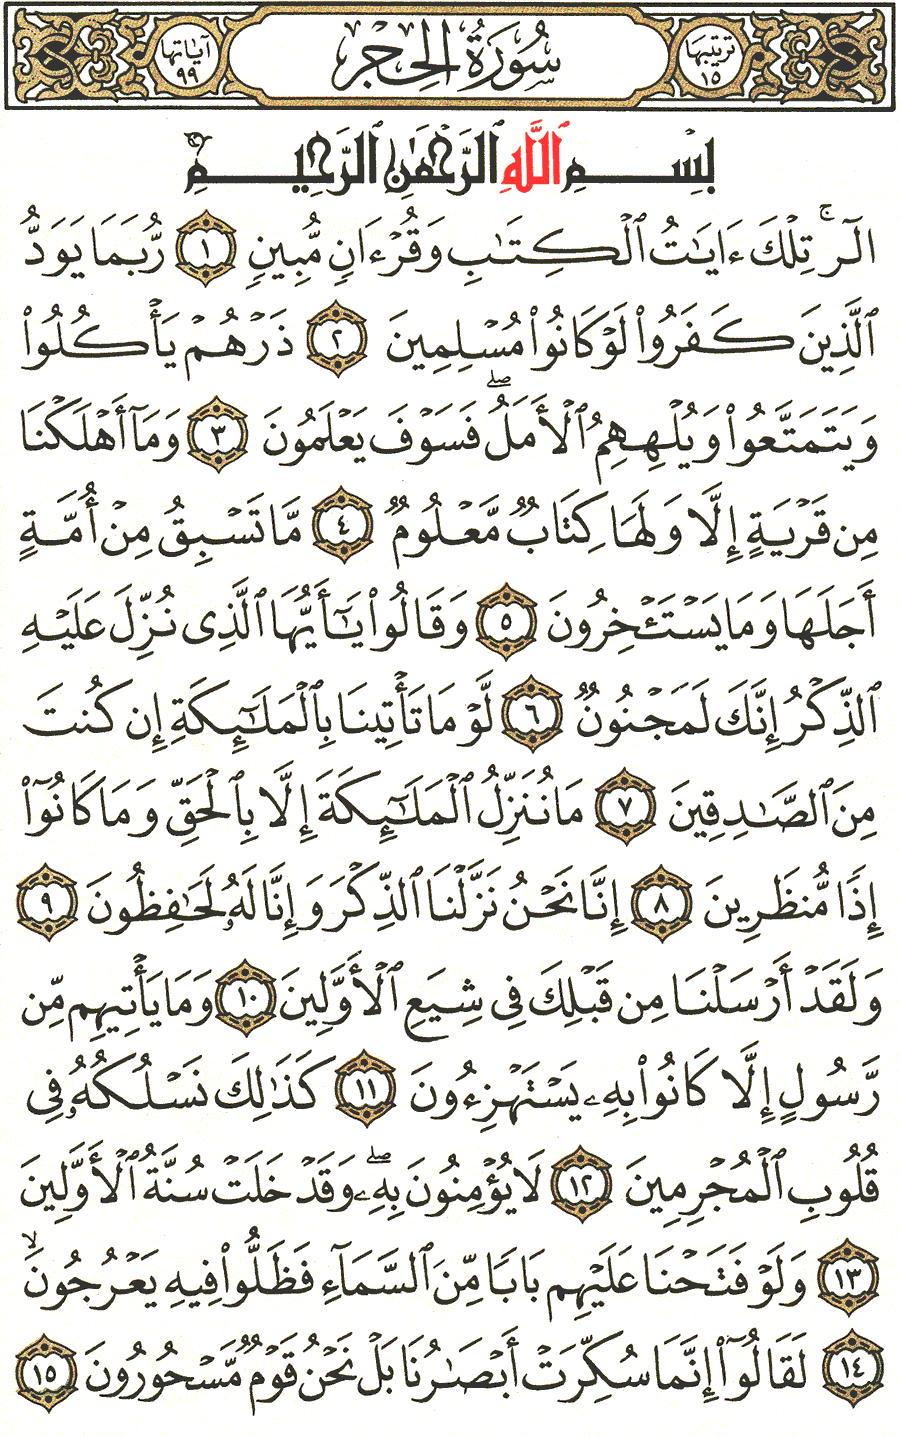 ترتيبها ١٥ سُورَةُ الحِجر آياتها ٩٩
بِسْمِ ٱللَّهِ ٱلرَّحْمَٰنِ ٱلرَّحِيمِ
الٓر ۚ تِلْكَ ءَايَٰتُ ٱلْكِتَٰبِ وَقُرْءَانٍ مُّبِينٍ ١ رُّبَمَا يَوَدُّ
ٱلَّذِينَ كَفَرُوا۟ لَوْ كَانُوا۟ مُسْلِمِينَ ٢ ذَرْهُمْ يَأْكُلُوا۟
وَيَتَمَتَّعُوا۟ وَيُلْهِهِمُ ٱلْأَمَلُ ۖ فَسَوْفَ يَعْلَمُونَ ٣ وَمَآ أَهْلَكْنَا
مِن قَرْيَةٍ إِلَّا وَلَهَا كِتَابٌ مَّعْلُومٌ ٤ مَّا تَسْبِقُ مِنْ أُمَّةٍ
أَجَلَهَا وَمَا يَسْتَـْٔخِرُونَ ٥ وَقَالُوا۟ يَٰٓأَيُّهَا ٱلَّذِى نُزِّلَ عَلَيْهِ
ٱلذِّكْرُ إِنَّكَ لَمَجْنُونٌ ٦ لَّوْ مَا تَأْتِينَا بِٱلْمَلَٰٓئِكَةِ إِن كُنتَ
مِنَ ٱلصَّٰدِقِينَ ٧ مَا نُنَزِّلُ ٱلْمَلَٰٓئِكَةَ إِلَّا بِٱلْحَقِّ وَمَا كَانُوٓا۟
إِذًا مُّنظَرِينَ ٨ إِنَّا نَحْنُ نَزَّلْنَا ٱلذِّكْرَ وَإِنَّا لَهُۥ لَحَٰفِظُونَ ٩
وَلَقَدْ أَرْسَلْنَا مِن قَبْلِكَ فِى شِيَعِ ٱلْأَوَّلِينَ ١٠ وَمَا يَأْتِيهِم مِّن
رَّسُولٍ إِلَّا كَانُوا۟ بِهِۦ يَسْتَهْزِءُونَ ١١ كَذَٰلِكَ نَسْلُكُهُۥ فِى
قُلُوبِ ٱلْمُجْرِمِينَ ١٢ لَا يُؤْمِنُونَ بِهِۦ ۖ وَقَدْ خَلَتْ سُنَّةُ ٱلْأَوَّلِينَ
١٣ وَلَوْ فَتَحْنَا عَلَيْهِم بَابًا مِّنَ ٱلسَّمَآءِ فَظَلُّوا۟ فِيهِ يَعْرُجُونَ ۙ
١٤ لَقَالُوٓا۟ إِنَّمَا سُكِّرَتْ أَبْصَٰرُنَا بَلْ نَحْنُ قَوْمٌ مَّسْحُورُونَ ١٥